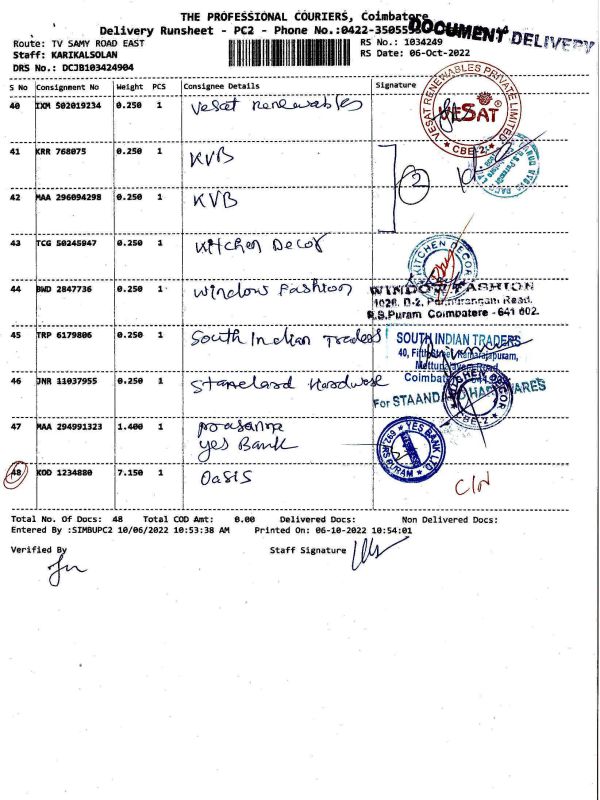 THE PROFESSIONAL COURIERS, Coimbatore
Delivery Runsheet - PC2 - Phone No.:0422-350555
DOCUMENT DELIVERY
Route: TV SAMY ROAD EAST
RS No.: 1034249
Staff: KARIKALSOLAN
RS Date: 06-Oct-2022
DRS No.: DCJB103424904
S No Consignment No Weight PCS Consignee Details Signature
40 IXM 502019234 0.250 1 Vesat Renewables
VESAT RENEWABLES PRIVATE LIMITED
VESAT
★ CBE-2 ★
41 KRR 768075 0.250 1 KVB
2
42 MAA 296094298 0.250 1 KVB
43 TCG 50245947 0.250 1 Kitchen Decor
KITCHEN DECOR
44 BWD 2847736 0.250 1 Window Fashion
WINDOW FASHION
Road.
R.S.Puram Coimbatore - 641 002.
45 TRP 6179806 0.250 1 South Indian Traders
SOUTH INDIAN TRADERS
40, Fifth Street, Kamarajapuram,
46 JNR 11037955 0.250 1 Standard Hardware
For STAANDARD HARDWARES
KITCHEN DECOR
CBE-2
47 MAA 294991323 1.400 1 prasanna
yes Bank
YES BANK LTD
RS PURAM
48 KOD 1234880 7.150 1 Oasis
C/N
Total No. Of Docs: 48 Total COD Amt: 0.00 Delivered Docs: Non Delivered Docs:
Entered By :SIMBUPC2 10/06/2022 10:53:38 AM Printed On: 06-10-2022 10:54:01
Verified By Staff Signature